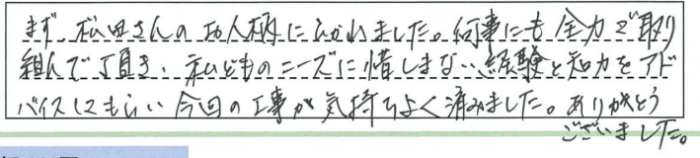 まず、松田さんのお人柄にひかれました。何事にも全力で取り
組んで頂き、私どものニーズに惜しまない経験と知力をアド
バイスしてもらい今回の工事が気持ちよく済みました。ありがとう
ございました。